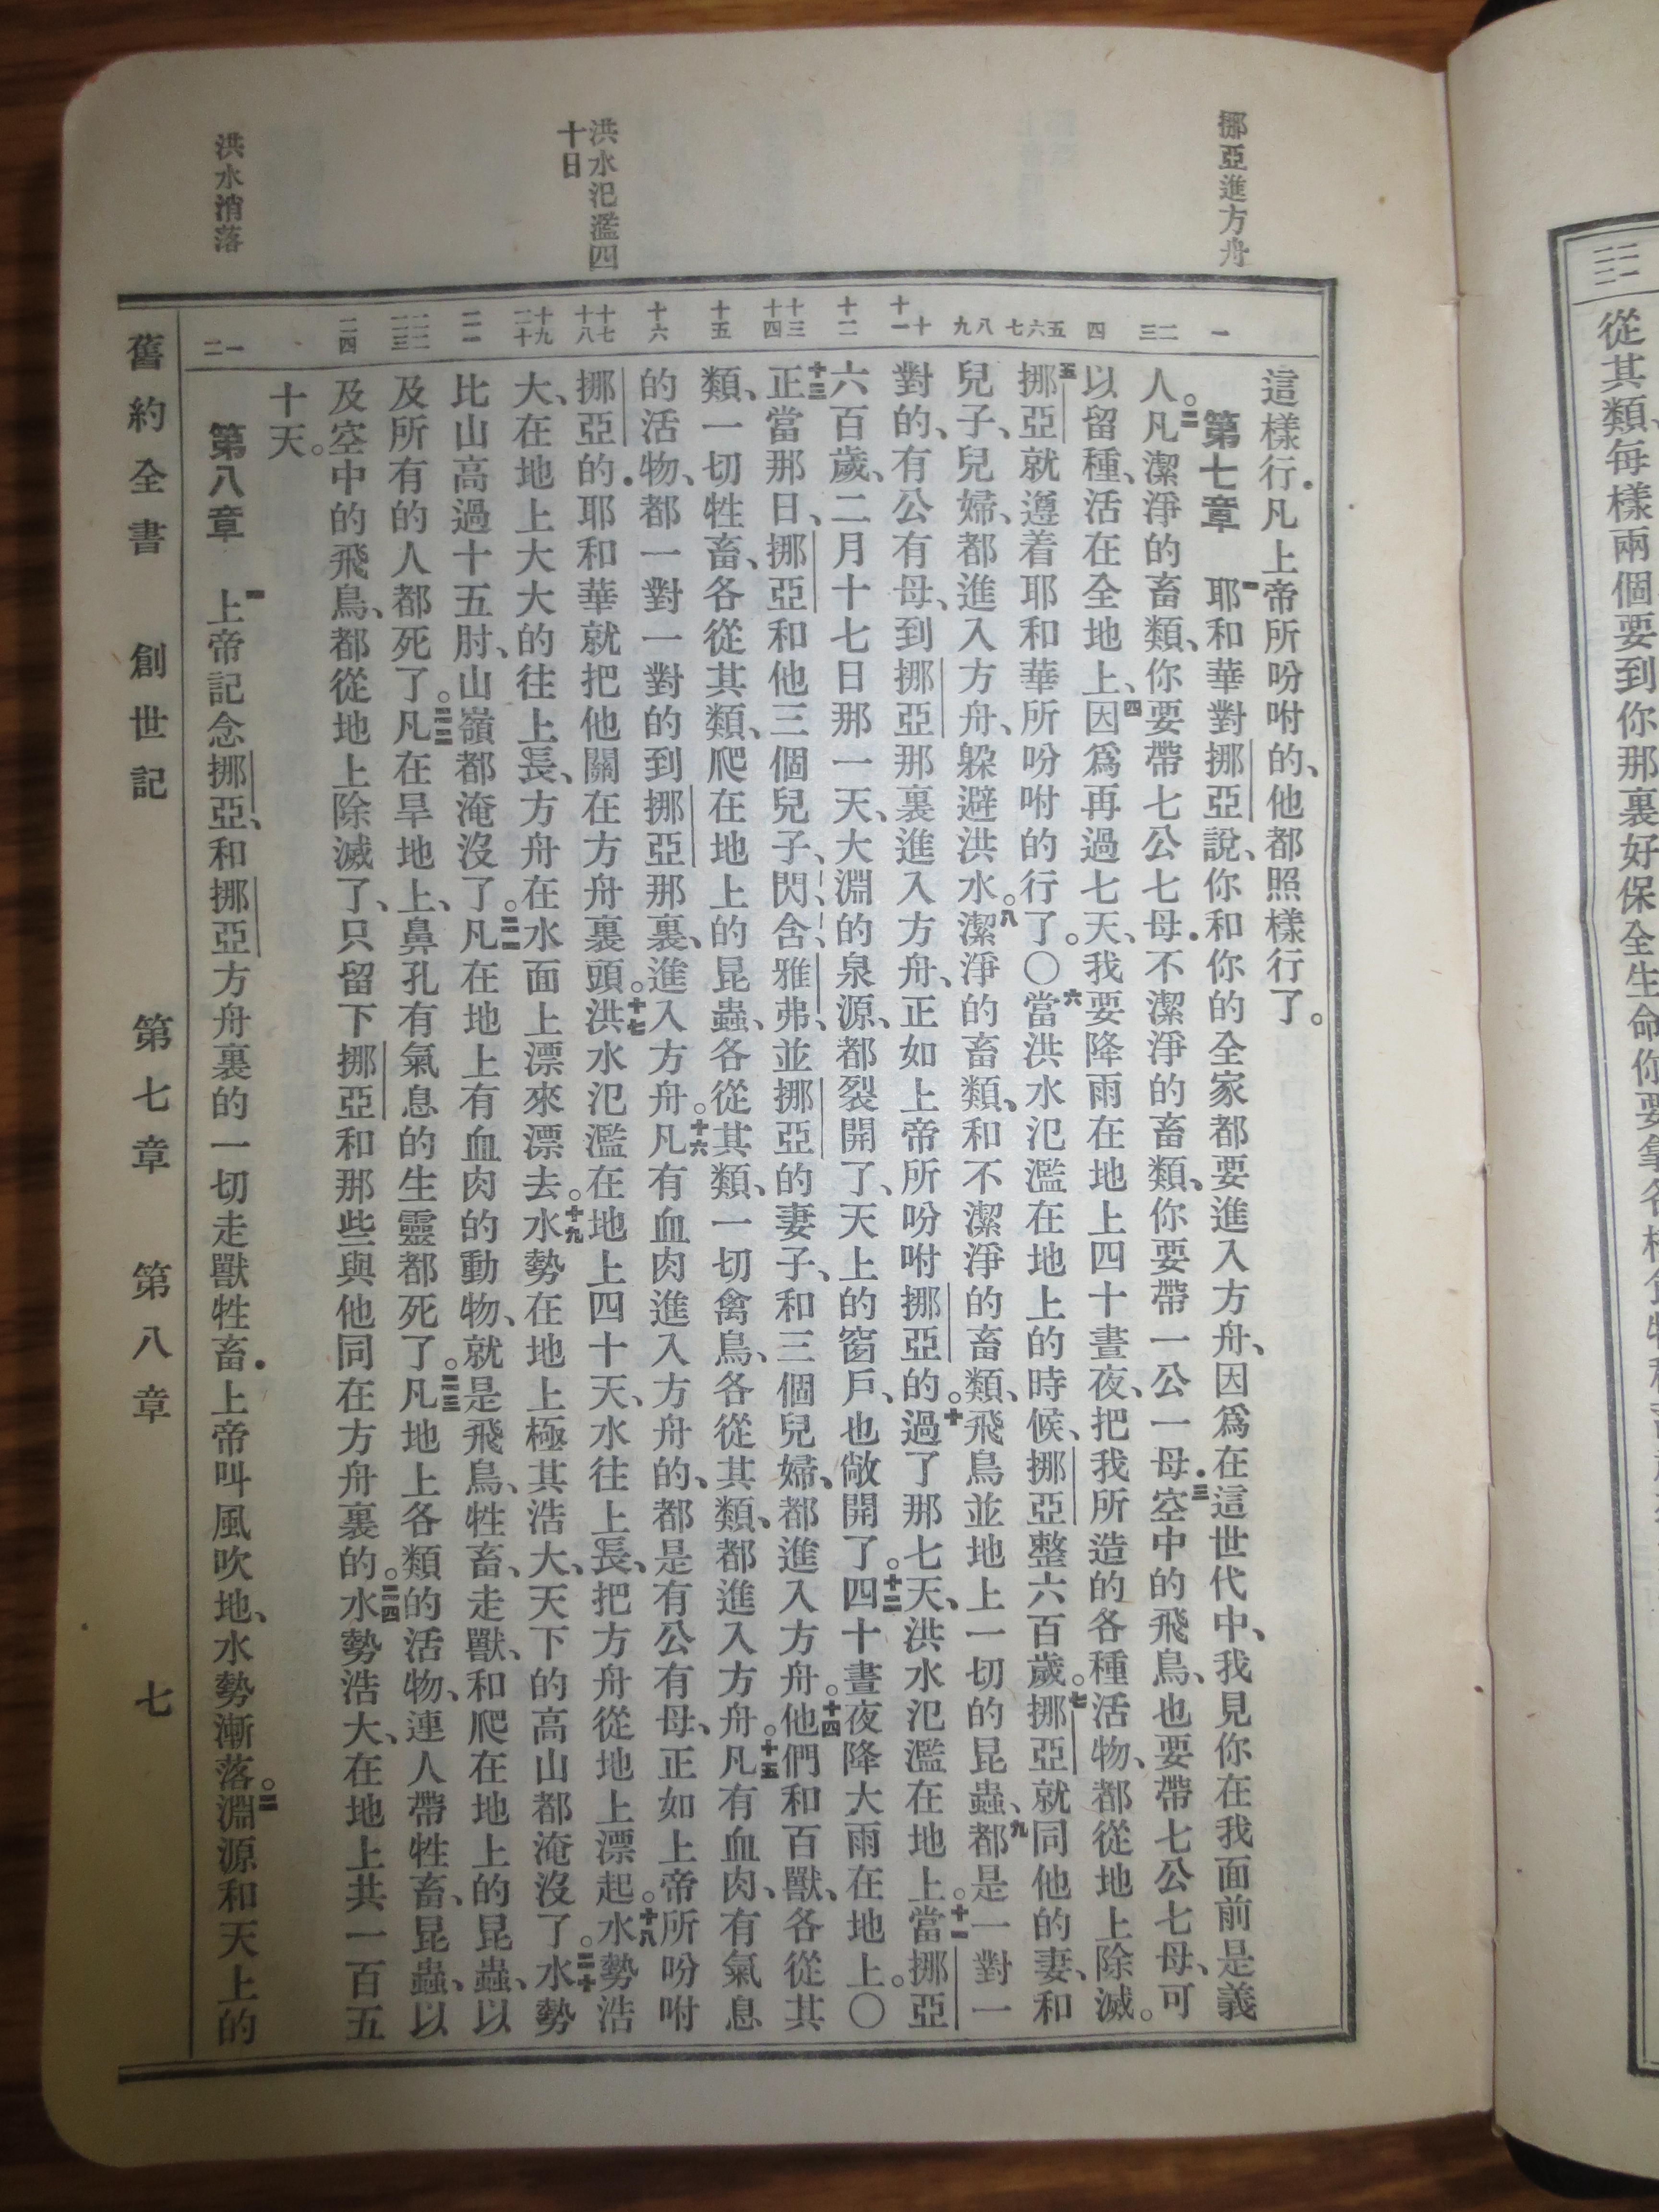 從其類、每樣兩個要到你那裏好保全生命你要拿各樣食物
挪亞進方舟
洪水氾濫四
十日
洪水消落
一 二 三 四 五 六 七 八 九 十 十一 十二 十三 十四 十五 十六 十七 十八 十九 二十 二一 二二 二三 二四 一 二
這樣行．凡上帝所吩咐的、他都照樣行了。
第七章 一耶和華對挪亞說、你和你的全家都要進入方舟、因爲在這世代中、我見你在我面前是義
人。二凡潔淨的畜類、你要帶七公七母．不潔淨的畜類、你要帶一公一母．三空中的飛鳥、也要帶七公七母、可
以留種、活在全地上、四因爲再過七天、我要降雨在地上四十晝夜、把我所造的各種活物、都從地上除滅。
五挪亞就遵着耶和華所吩咐的行了。〇六當洪水氾濫在地上的時候、挪亞整六百歲。七挪亞就同他的妻、和
兒子、兒婦、都進入方舟、躱避洪水。八潔淨的畜類、和不潔淨的畜類、飛鳥並地上一切的昆蟲、九都是一對一
對的、有公有母、到挪亞那裏進入方舟、正如上帝所吩咐挪亞的。十過了那七天、洪水氾濫在地上。十一當挪亞
六百歲、二月十七日那一天、大淵的泉源、都裂開了、天上的窗戶、也敞開了。十二四十晝夜降大雨在地上。〇
十三正當那日、挪亞和他三個兒子、閃、含、雅弗、並挪亞的妻子、和三個兒婦、都進入方舟。十四他們和百獸、各從其
類、一切牲畜、各從其類、爬在地上的昆蟲、各從其類、一切禽鳥、各從其類、都進入方舟。十五凡有血肉、有氣息
的活物、都一對一對的到挪亞那裏、進入方舟。十六凡有血肉進入方舟的、都是有公有母、正如上帝所吩咐
挪亞的．耶和華就把他關在方舟裏頭。十七洪水氾濫在地上四十天、水往上長、把方舟從地上漂起。十八水勢浩
大、在地上大大的往上長、方舟在水面上漂來漂去。十九水勢在地上極其浩大、天下的高山都淹沒了。二十水勢
比山高過十五肘、山嶺都淹沒了。二一凡在地上有血肉的動物、就是飛鳥、牲畜、走獸、和爬在地上的昆蟲、以
及所有的人都死了。二二凡在旱地上、鼻孔有氣息的生靈都死了。二三凡地上各類的活物、連人帶牲畜、昆蟲、以
及空中的飛鳥、都從地上除滅了、只留下挪亞和那些與他同在方舟裏的。二四水勢浩大、在地上共一百五
十天。
第八章 一上帝記念挪亞、和挪亞方舟裏的一切走獸牲畜．上帝叫風吹地、水勢漸落。二淵源和天上的
舊約全書 創世記 第七章 第八章 七